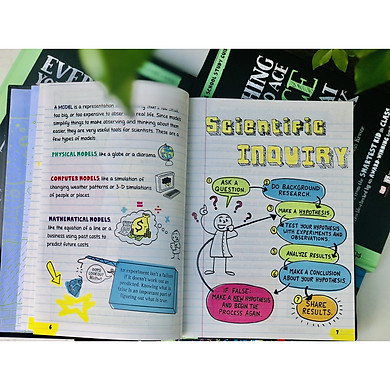 A MODEL is a representation
too big, or too expensive to observe in real life. Since models
simplify things to make observing and thinking about them
easier, they are very useful tools for scientists. These are a
few types of models:
PHYSICAL MODELS, like a globe or a diorama.
COMPUTER MODELS, like a simulation of
changing weather patterns or 3-D simulations
of people or places
MATHEMATICAL MODELS,
like the equation of a line or a
business using past costs to
predict future costs
$
An experiment isn't a failure
if it doesn't work out as
predicted. Knowing what is
false is an important part of
figuring out what is true.
6
Scientific
INQUIRY
ASK A
QUESTION.
2 DO BACKGROUND
RESEARCH.
3 MAKE A HYPOTHESIS.
4 TEST YOUR HYPOTHESIS
WITH EXPERIMENTS AND
OBSERVATIONS.
5 ANALYZE RESULTS.
6 MAKE A CONCLUSION
ABOUT YOUR HYPOTHESIS.
IF FALSE:
MAKE A NEW HYPOTHESIS
AND BEGIN THE
PROCESS AGAIN.
7 SHARE
RESULTS.
7
SMARTEST KID in CLASS